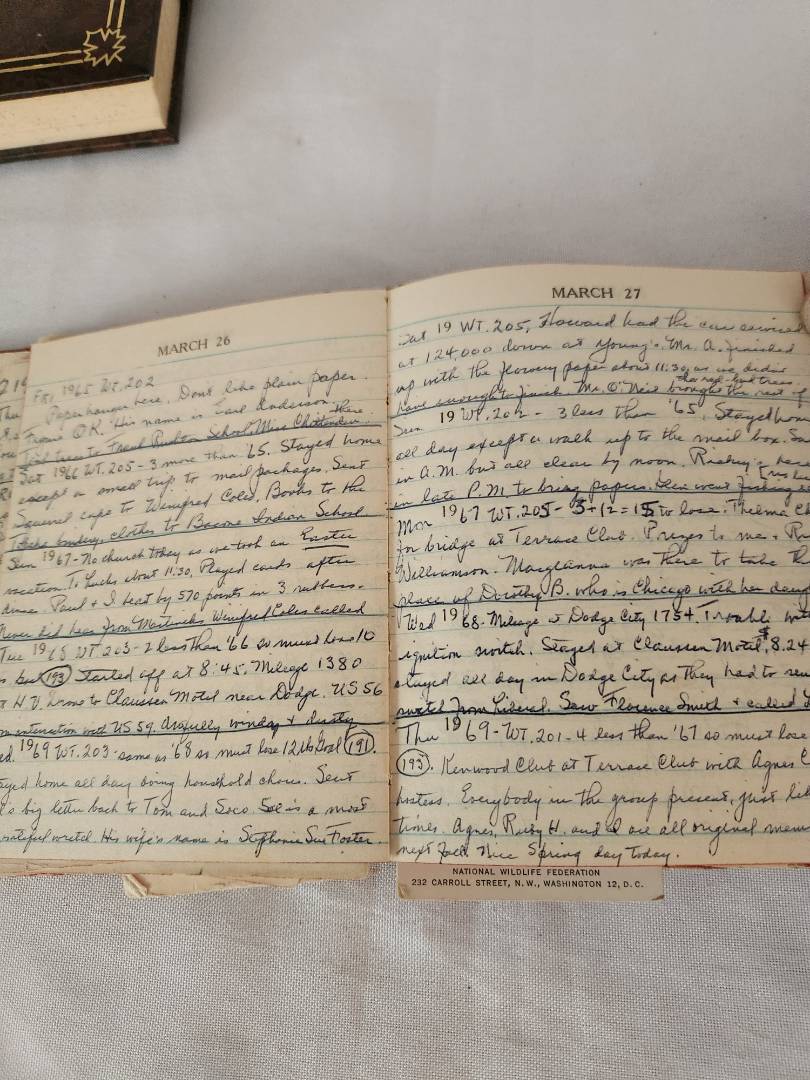 MARCH 26
Fri. 1965 WT. 202
Paperhanger here. Don't like plain paper.
Frame O.K. His name is Earl Anderson.
there
School Miss Chittenden
Sat 1966 WT. 205 - 3 more than '65. Stayed home
except a small trip to mail packages. Sent
Squirrel cape to Winifred Coles. Books to the
clothes to Bacone Indian School
Sun 1967 - No church today as we took an Easter
vacation. To Lucks about 11:30. Played cards after
dinner. Paul & I beat by 570 points in 3 rubbers.
Never did hear from Winifred Coles called
Tue 1968 WT 203 - 2 less than '66 so must lose 10
(193) Started off at 8:45. Mileage 1380
to Claussen Motel near Dodge. US 56
intersection with US 59. Awfully windy & dusty
1969 WT. 203 - same as '68 so must lose 12 lbs Goal (191).
Stayed home all day doing household chores. Sent
big letter back to Tom and Soco. is a most
wretch. His wife's name is Sephonie Sue Foster.
MARCH 27
Sat 19 WT. 205. Howard had the car serviced
at 124,000 down at Young's. Mr. A. finished
up with the flowery paper about 11:30, as we didn't
have enough to finish. Mr. O'Neil brought the rest of
the red-bud trees
Sun 19 WT. 202 - 3 less than '65. Stayed home
all day except a walk up to the mail box.
in A.M. but all clear by noon. Rickey's here
in late P.M. to bring papers. then went fishing
Mon 1967 WT. 205 - 3 + 12 = 15 to lose. Thelma
for bridge at Terrace Club. Prizes to me &
Williamson. Maryanna was there to take the
place of Dorothy B. who is Chicago with her
Wed 1968 - Mileage at Dodge City 1754. Trouble with
ignition switch. Stayed at Claussen Motel, $8.24
stayed all day in Dodge City as they had to send
switch from Liberal. Saw Florence Smith & called
Thu 1969 - WT. 201 - 4 less than '67 so must lose
(193). Kenwood Club at Terrace Club with Agnes C
hostess. Everybody in the group present, just like
times. Agnes, Ruby H. and I are all original
next fall. Nice Spring day today.
NATIONAL WILDLIFE FEDERATION
232 CARROLL STREET, N.W., WASHINGTON 12, D.C.